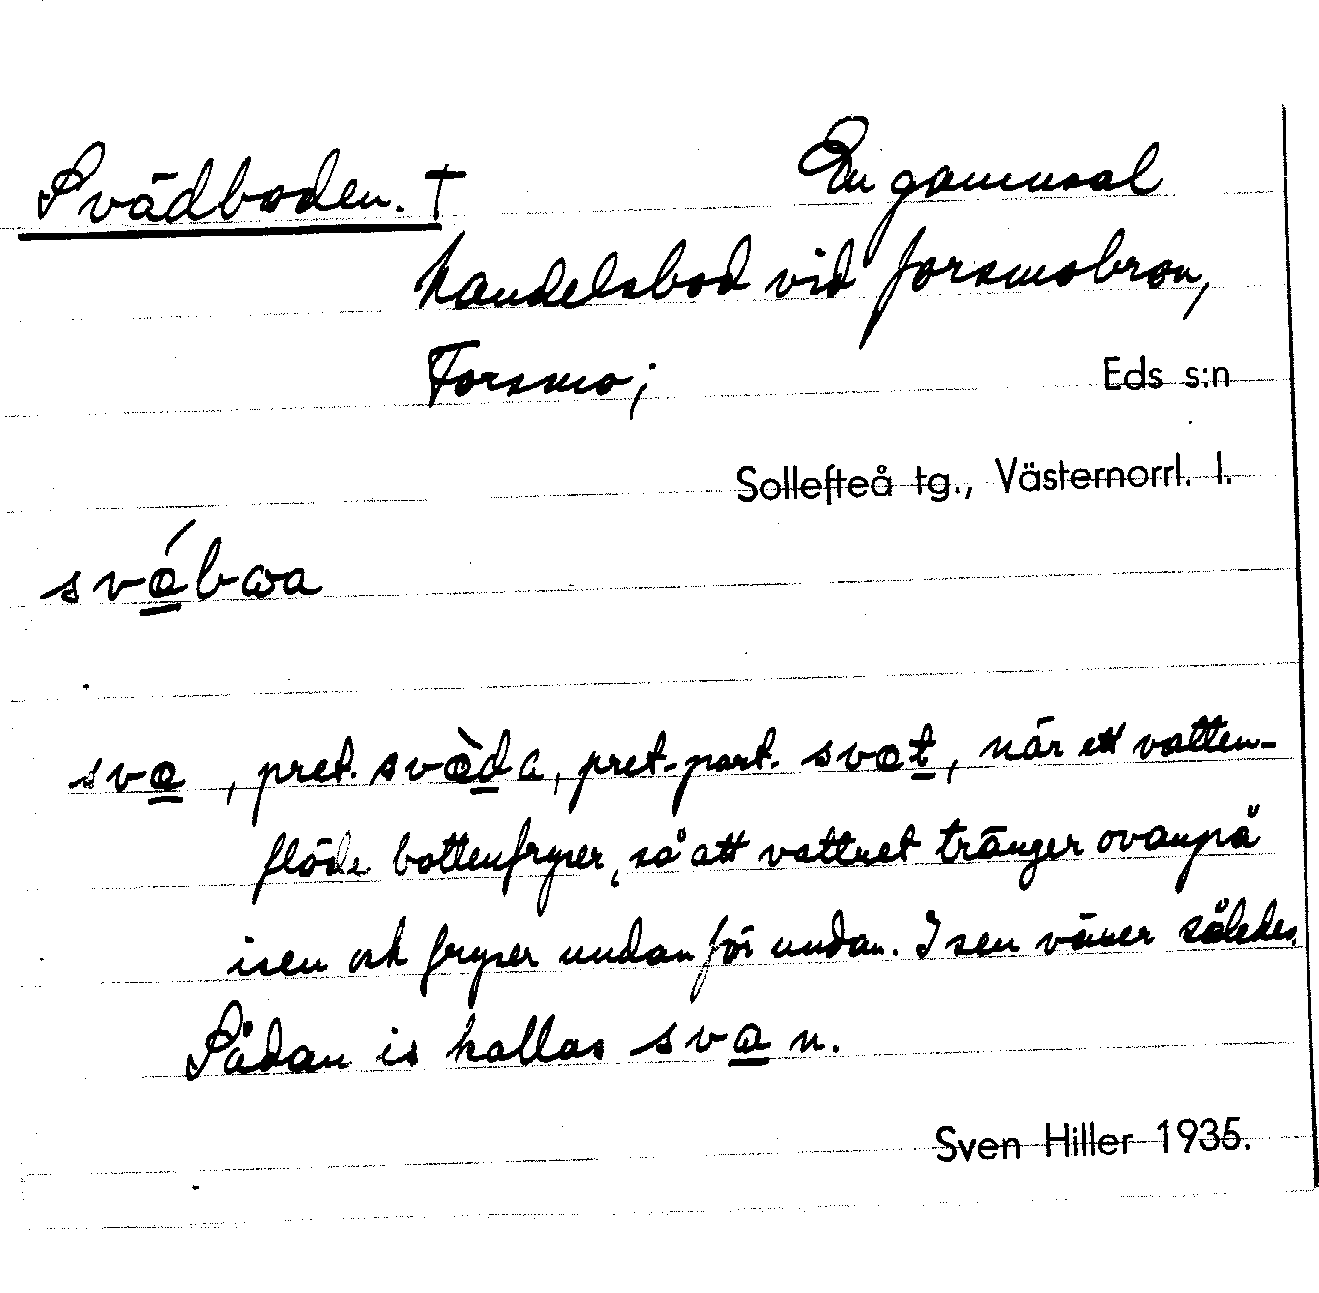 Svädboden. † En gammal
handelsbod vid forsmobron,
Forsmo; Eds s:n
Sollefteå tg., Västernorrl. l.
svába
sva, pret. svàda, pret. part. svat, när ett vatten-
flöde bottenfryser, så att vattnet tränger ovanpå
isen och fryser undan för undan. Isen växer således.
Sådan is kallas svan.
Sven Hiller 1935.